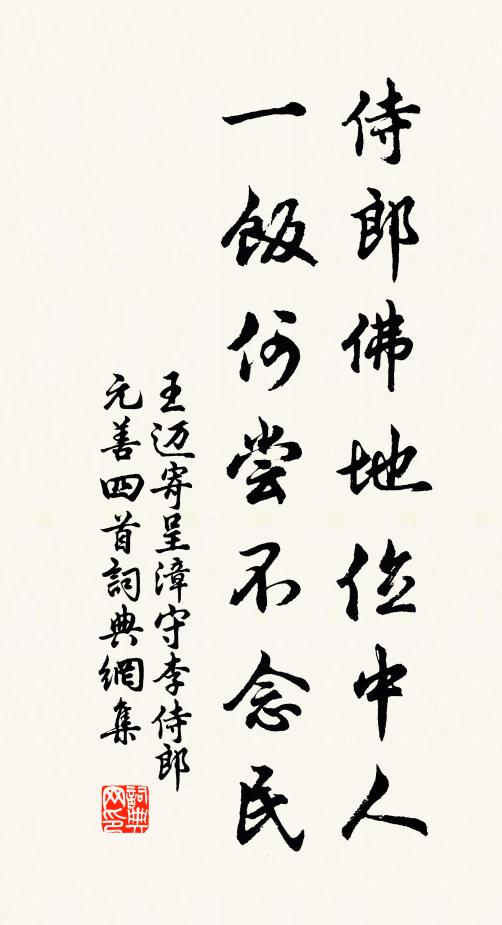 侍郎佛地位中人
一飯何尝不念民
王迈寄呈漳守李侍郎
元善四首詞典網集
詞典网印